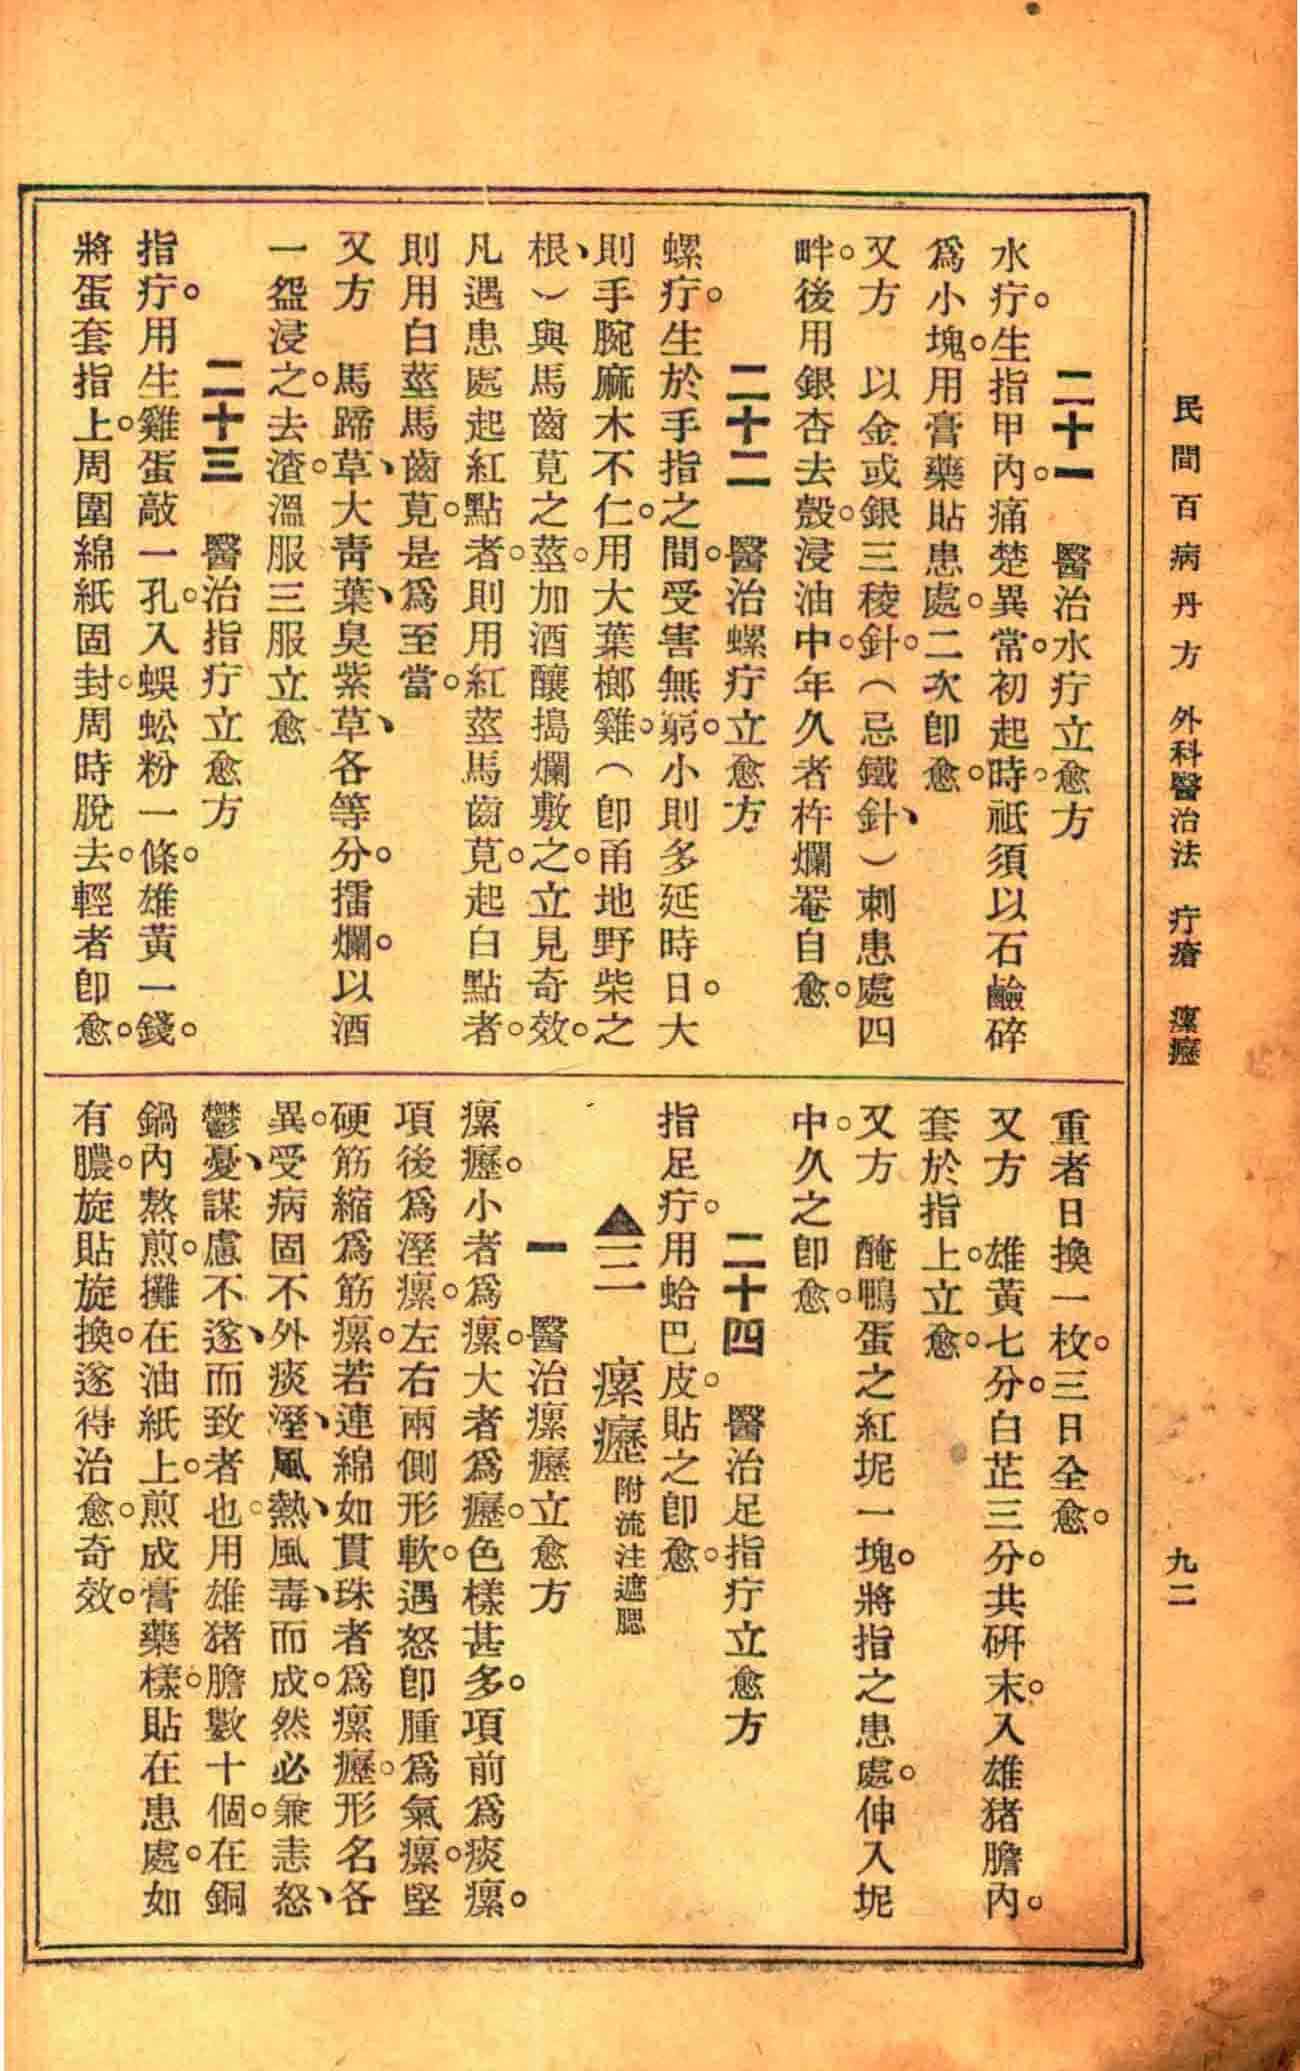 民間百病丹方　外科醫治法　疔瘡　瘰癧　　九二
二十一　醫治水疔立愈方
水疔。生指甲內。痛楚異常。初起時。祗須以石鹼碎
爲小塊。用膏藥貼患處。二次卽愈。
又方　以金或銀三稜針。（忌鐵針、）刺患處四
畔。後用銀杏去殼。浸油中。年久者杵爛罨自愈。
二十二　醫治螺疔立愈方
螺疔。生於手指之間。受害無窮。小則多延時日。大
則手腕麻木不仁。用大葉榔雞。（卽甬地野柴之
根、）與馬齒莧之莖。加酒釀搗爛敷之。立見奇效。
凡遇患處起紅點者。則用紅莖馬齒莧。起白點者。
則用白莖馬齒莧。是爲至當。
又方　馬蹄草、大靑葉、臭紫草、各等分。擂爛。以酒
一盌浸之。去渣。溫服三服立愈
二十三　醫治指疔立愈方
指疔。用生雞蛋敲一孔。入蜈蚣粉一條。雄黃一錢。
將蛋套指上。周圍綿紙固封。周時脫去。輕者卽愈。
重者日換一枚。三日全愈。
又方　雄黃七分。白芷三分。共硏末。入雄猪膽內。
套於指上。立愈。
又方　醃鴨蛋之紅坭一塊。將指之患處。伸入坭
中。久之卽愈。
二十四　醫治足指疔立愈方
指足疔。用蛤巴皮。貼之卽愈。
▲三　瘰癧　附流注遮腮
一　醫治瘰癧立愈方
瘰癧。小者爲瘰。大者爲癧。色樣甚多。項前爲痰瘰。
項後爲溼瘰。左右兩側形軟。遇怒卽腫爲氣瘰。堅
硬筋縮爲筋瘰。若連綿如貫珠者爲瘰癧。形名各
異。受病固不外痰溼、風熱、風毒、而成。然必兼恚怒、
鬱憂、謀慮不遂、而致者也。用雄猪膽數十個。在銅
鍋內熬煎。攤在油紙上。煎成膏藥樣。貼在患處。如
有膿。旋貼旋換。遂得治愈。奇效。